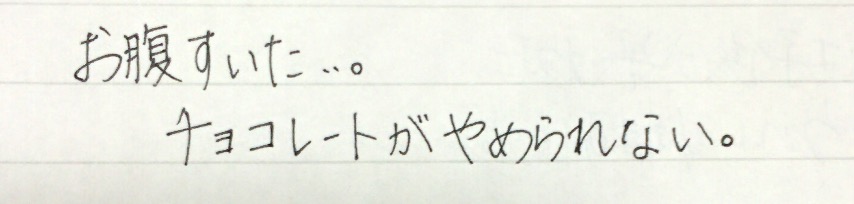 お腹すいた…。
チョコレートがやめられない。